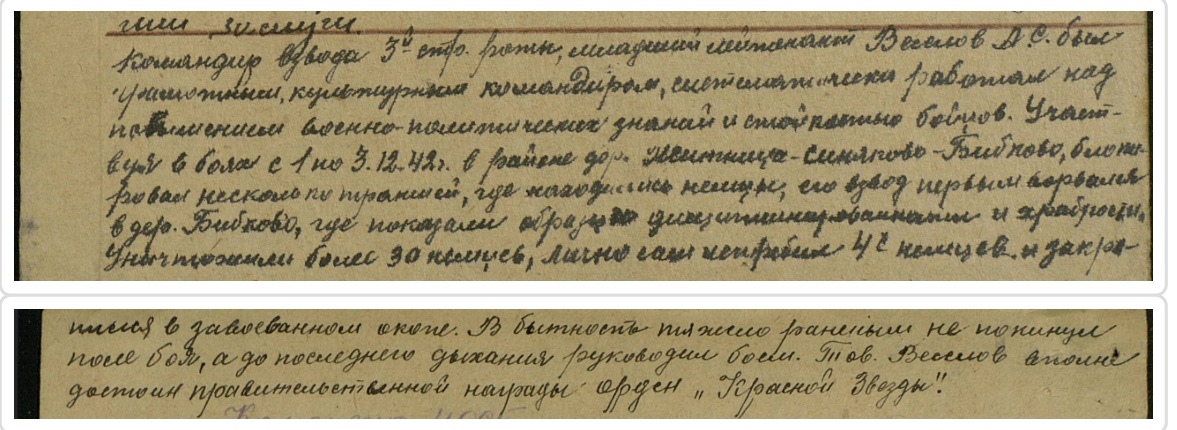 заслуги.
Командир взвода 3й стр. роты, младший лейтенант Веселов А.С. был
грамотным, культурным командиром, систематически работал над
повышением военно-политических знаний и стойкостью бойцов. Участ-
вуя в боях с 1 по 3.12.42г. в районе дер. Житница-Синяково-Бибково, блоки-
ровал несколько траншей, где находились немцы, его взвод первым ворвался
в дер. Бибково, где показали образцы дисциплинированности и храбрости.
Уничтожили более 30 немцев, лично сам истребил 4х немцев и закре-
пился в завоеванном окопе. В бытность тяжело раненым не покинул
поле боя, а до последнего дыхания руководил боем. Тов. Веселов вполне
достоин правительственной награды орден „Красной Звезды".